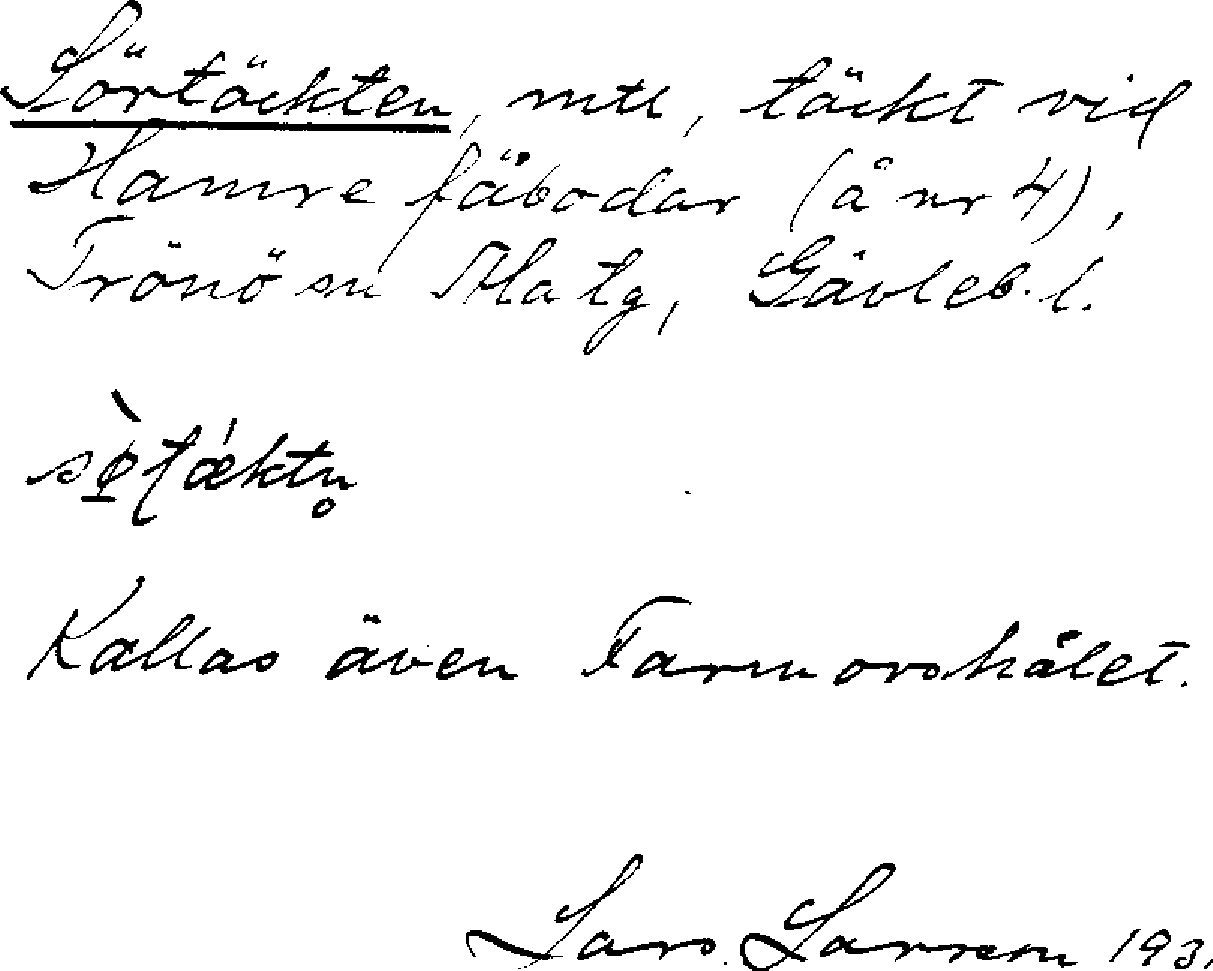 Sörtäckten, mtl, täckt vid
Hamre fäbodar (å nr 4),
Trönö sn Ala tg, Gävleb. l.
sø̀ʈǽktn̥
Kallas även Farmorshålet.
Lars Larsson 193.